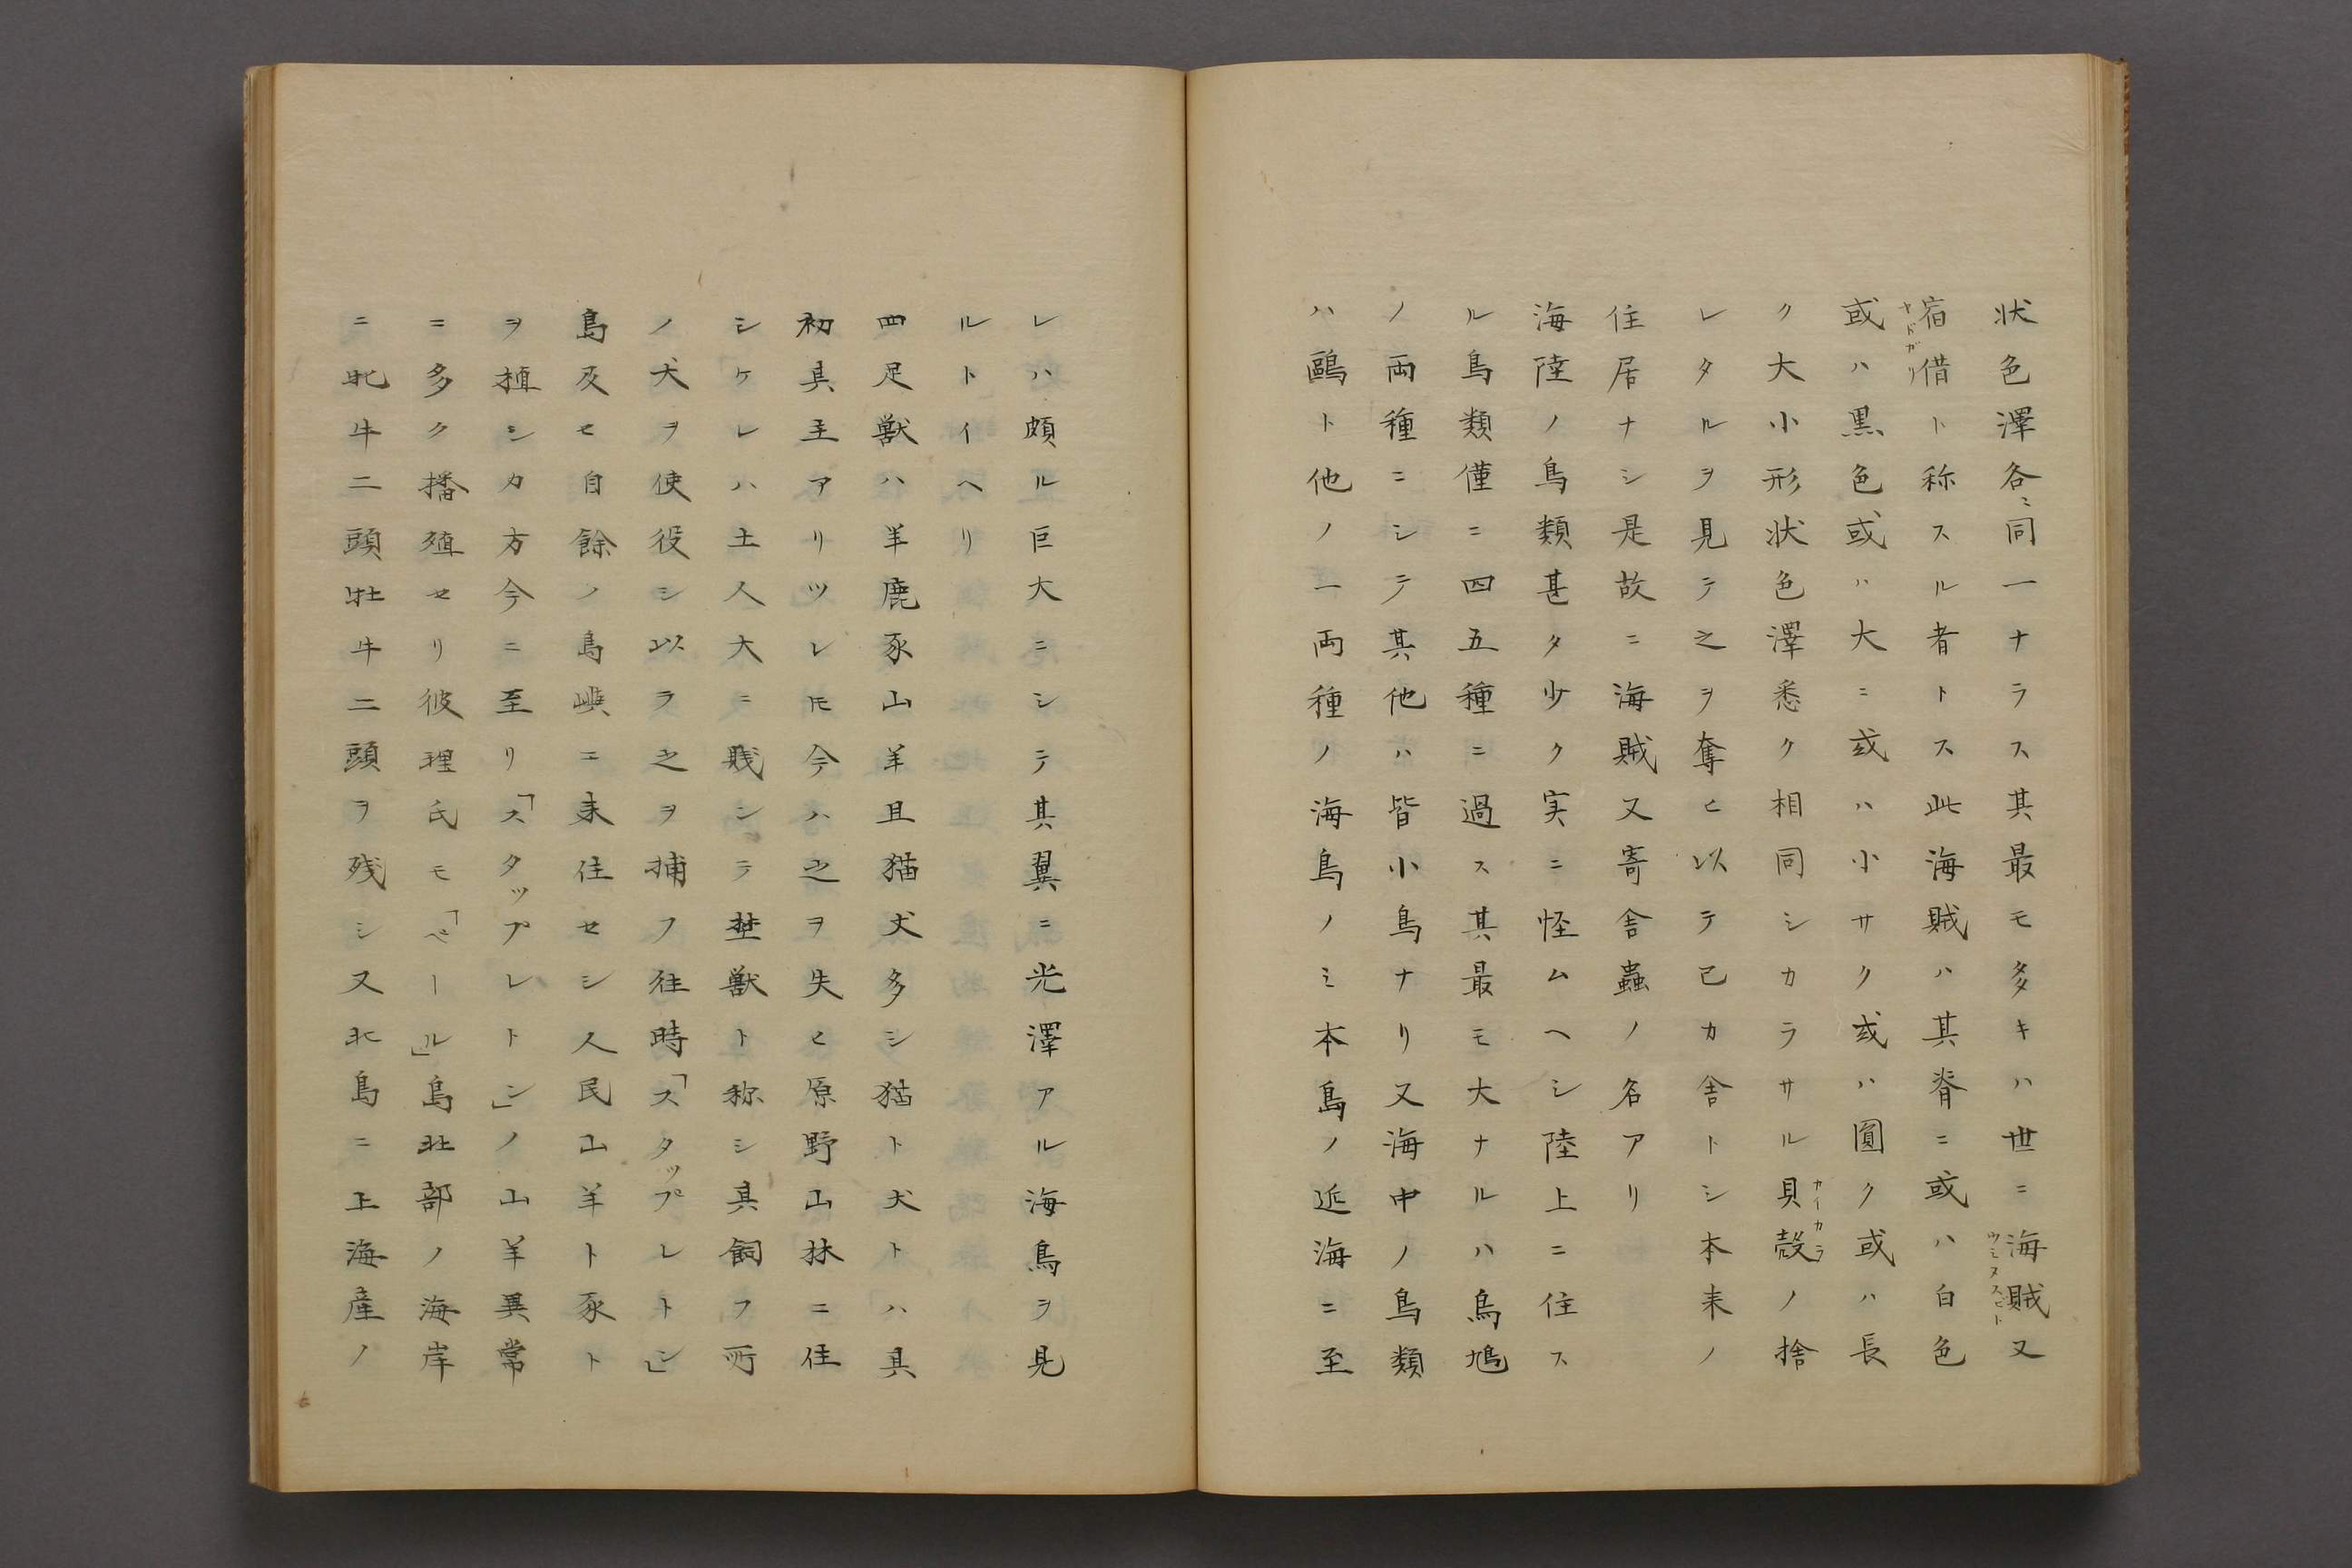 状色澤各〻同一ナラス其最モ多キハ世ニ海賊又
ウミヌスビト
宿借ト称スル者トス此海賊ハ其脊ニ或ハ白色
ヤドガリ
或ハ黒色或ハ大ニ或ハ小サク或ハ圓ク或ハ長
ク大小形状色澤悉ク相同シカラサル貝殻ノ捨
カイカラ
レタルヲ見テ之ヲ奪ヒ以テ己カ舎トシ本来ノ
住居ナシ是故ニ海賊又寄舎蟲ノ名アリ
海陸ノ鳥類甚タ少ク実ニ怪ムヘシ陸上ニ住ス
ル鳥類僅ニ四五種ニ過ス其最モ大ナルハ烏鳩
ノ両種ニシテ其他ハ皆小鳥ナリ又海中ノ鳥類
ハ鷗ト他ノ一両種ノ海鳥ノミ本島ノ近海ニ至
レハ頗ル巨大ニシテ其翼ニ光澤アル海鳥ヲ見
ルトイヘリ
四足獣ハ羊鹿豕山羊且猫犬多シ猫ト犬トハ其
初其主アリツレ𪜈今ハ之ヲ失ヒ原野山林ニ住
シケレハ土人大ニ賤シテ埜獣ト称シ其飼フ所
ノ犬ヲ使役シ以ラ之ヲ捕フ往時「スタップレトン」
島及セ自餘ノ島嶼ニ来住セシ人民山羊ト豕ト
ヲ植シカ方今ニ至リ「スタップレトン」ノ山羊異常
ニ多ク播殖セリ彼理氏モ「ベール」島北部ノ海岸
ニ牝牛二頭牡牛二頭ヲ残シ又北島ニ上海産ノ